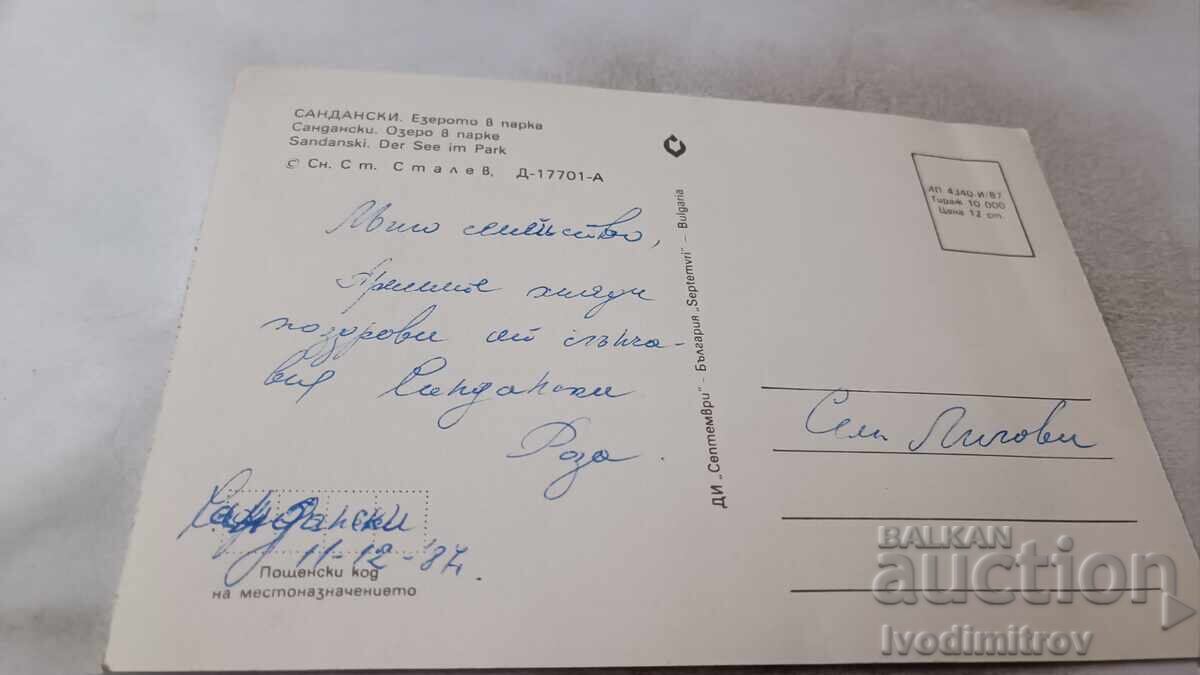 САНДАНСКИ. Езерото в парка
Сандански. Озеро в парке
Sandanski. Der See im Park
© Сн. Ст. Сталев, Д-17701-А
Мило семейство,
Приемете хиляди
поздрави от слънча-
вия Сандански
Роза.
Сандански
11-12-'87г.
Пощенски код
на местоназначението
ДИ „Септември" - България „Septemvri" - Bulgaria
ИП 4340-И/87
Тираж 10 000
Цена 12 ст.
Сем. Лигови
BALKAN
auction
Ivodimitrov